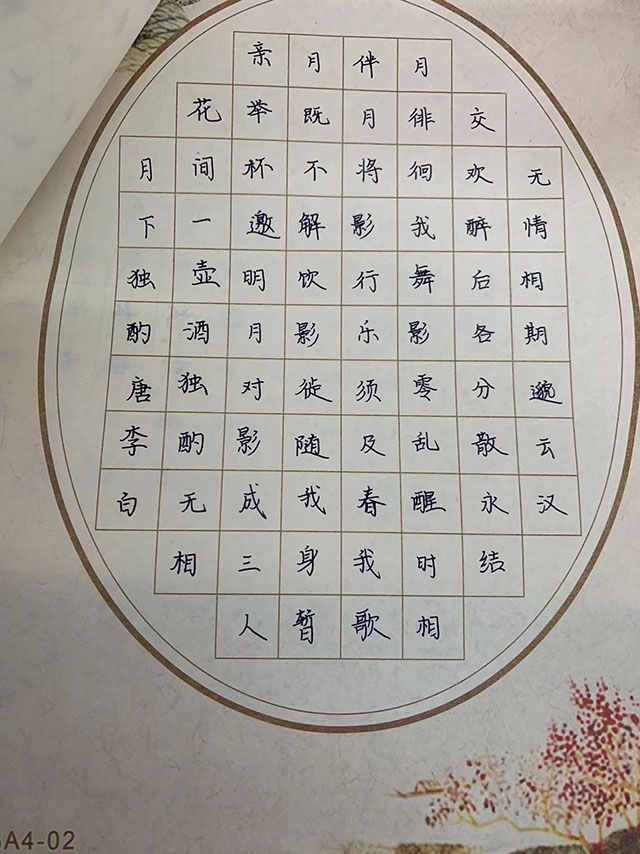 月下独酌唐李白
花间一壶酒独酌无相
亲举杯邀明月对影成三人
月既不解饮影徒随我身暂
伴月将影行乐须及春我歌
月徘徊我舞影零乱醒时相
交欢醉后各分散永结
无情相期邈云汉
A4-02